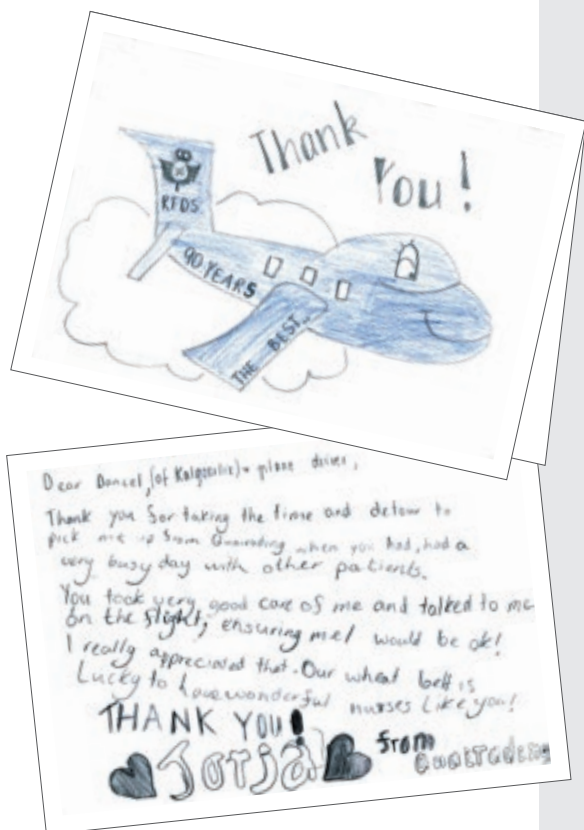 Thank
You!
RFDS
90 YEARS
THE BEST..
Dear Daniel, (of Kalgoorlie) + plane driver,
Thank you for taking the time and detour to
pick me up from Quairading when you had, had a
very busy day with other patients.
You took very good care of me and talked to me
on the flight, ensuring me I would be ok!
I really appreciated that. Our wheat belt is
Lucky to have wonderful nurses like you!
THANK YOU!
Jorja
from
Quairading